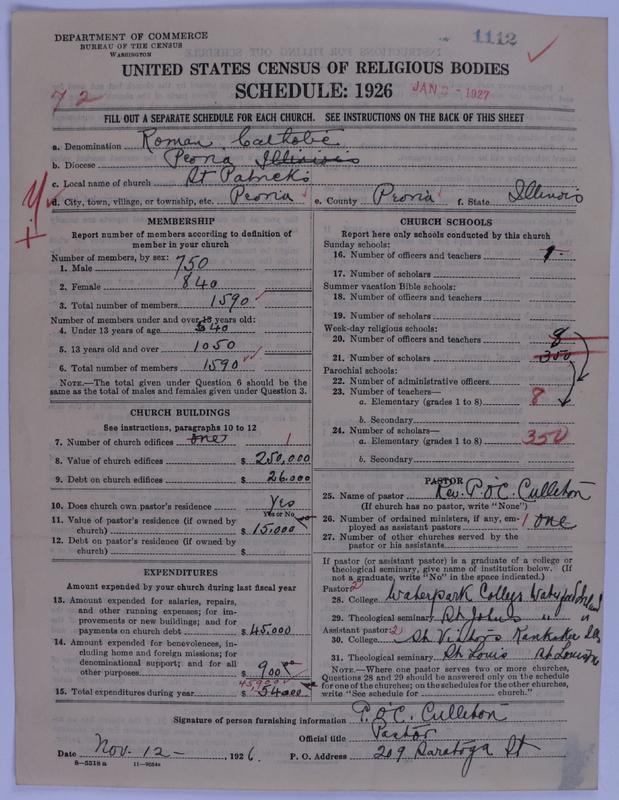 DEPARTMENT OF COMMERCE
BUREAU OF THE CENSUS
WASHINGTON
1112
UNITED STATES CENSUS OF RELIGIOUS BODIES
SCHEDULE: 1926
JAN 3 - 1927
72
FILL OUT A SEPARATE SCHEDULE FOR EACH CHURCH. SEE INSTRUCTIONS ON THE BACK OF THIS SHEET
a. Denomination Roman Catholic
b. Diocese Peoria Illinois
c. Local name of church St Patricks
d. City, town, village, or township, etc. Peoria e. County Peoria f. State Illinois
MEMBERSHIP
Report number of members according to definition of
member in your church
Number of members, by sex:
1. Male 750
2. Female 840
3. Total number of members 1590
Number of members under and over 13 years old:
4. Under 13 years of age 540
5. 13 years old and over 1050
6. Total number of members 1590
NOTE.—The total given under Question 6 should be the
same as the total of males and females given under Question 3.
CHURCH BUILDINGS
See instructions, paragraphs 10 to 12
7. Number of church edifices one 1
8. Value of church edifices $ 250,000
9. Debt on church edifices $ 26.000
10. Does church own pastor's residence Yes
Yes or No
11. Value of pastor's residence (if owned by
church) $ 15,000
12. Debt on pastor's residence (if owned by
church) $
EXPENDITURES
Amount expended by your church during last fiscal year
13. Amount expended for salaries, repairs,
and other running expenses; for im-
provements or new buildings; and for
payments on church debt $ 45,000
14. Amount expended for benevolences, in-
cluding home and foreign missions; for
denominational support; and for all
other purposes. $ 900
45900
15. Total expenditures during year $
CHURCH SCHOOLS
Report here only schools conducted by this church
Sunday schools:
16. Number of officers and teachers 1
17. Number of scholars
Summer vacation Bible schools:
18. Number of officers and teachers
19. Number of scholars
Week-day religious schools:
20. Number of officers and teachers 8
21. Number of scholars 350
Parochial schools:
22. Number of administrative officers
23. Number of teachers—
a. Elementary (grades 1 to 8) 8
b. Secondary
24. Number of scholars—
a. Elementary (grades 1 to 8) 350
b. Secondary
PASTOR
25. Name of pastor Rev. P. O'C. Culleton
(If church has no pastor, write "None")
26. Number of ordained ministers, if any, em-
ployed as assistant pastors 1 one
27. Number of other churches served by the
pastor or his assistants
If pastor (or assistant pastor) is a graduate of a college or
theological seminary, give name of institution below. (If
not a graduate, write "No" in the space indicated.)
Pastor: 2
28. College Waterpark College Waterford Ireland
29. Theological seminary St. Johns " "
Assistant pastor: 2
30. College St Viators Kankakee Ill
31. Theological seminary St Louis St Louis Mo
NOTE.—Where one pastor serves two or more churches,
Questions 28 and 29 should be answered only on the schedule
for one of the churches; on the schedules for the other churches,
write "See schedule for church."
Signature of person furnishing information P. O'C. Culleton
Official title Pastor
Date Nov. 12 - 1926. P. O. Address 209 Saratoga St
8—5318 a 11—9034a